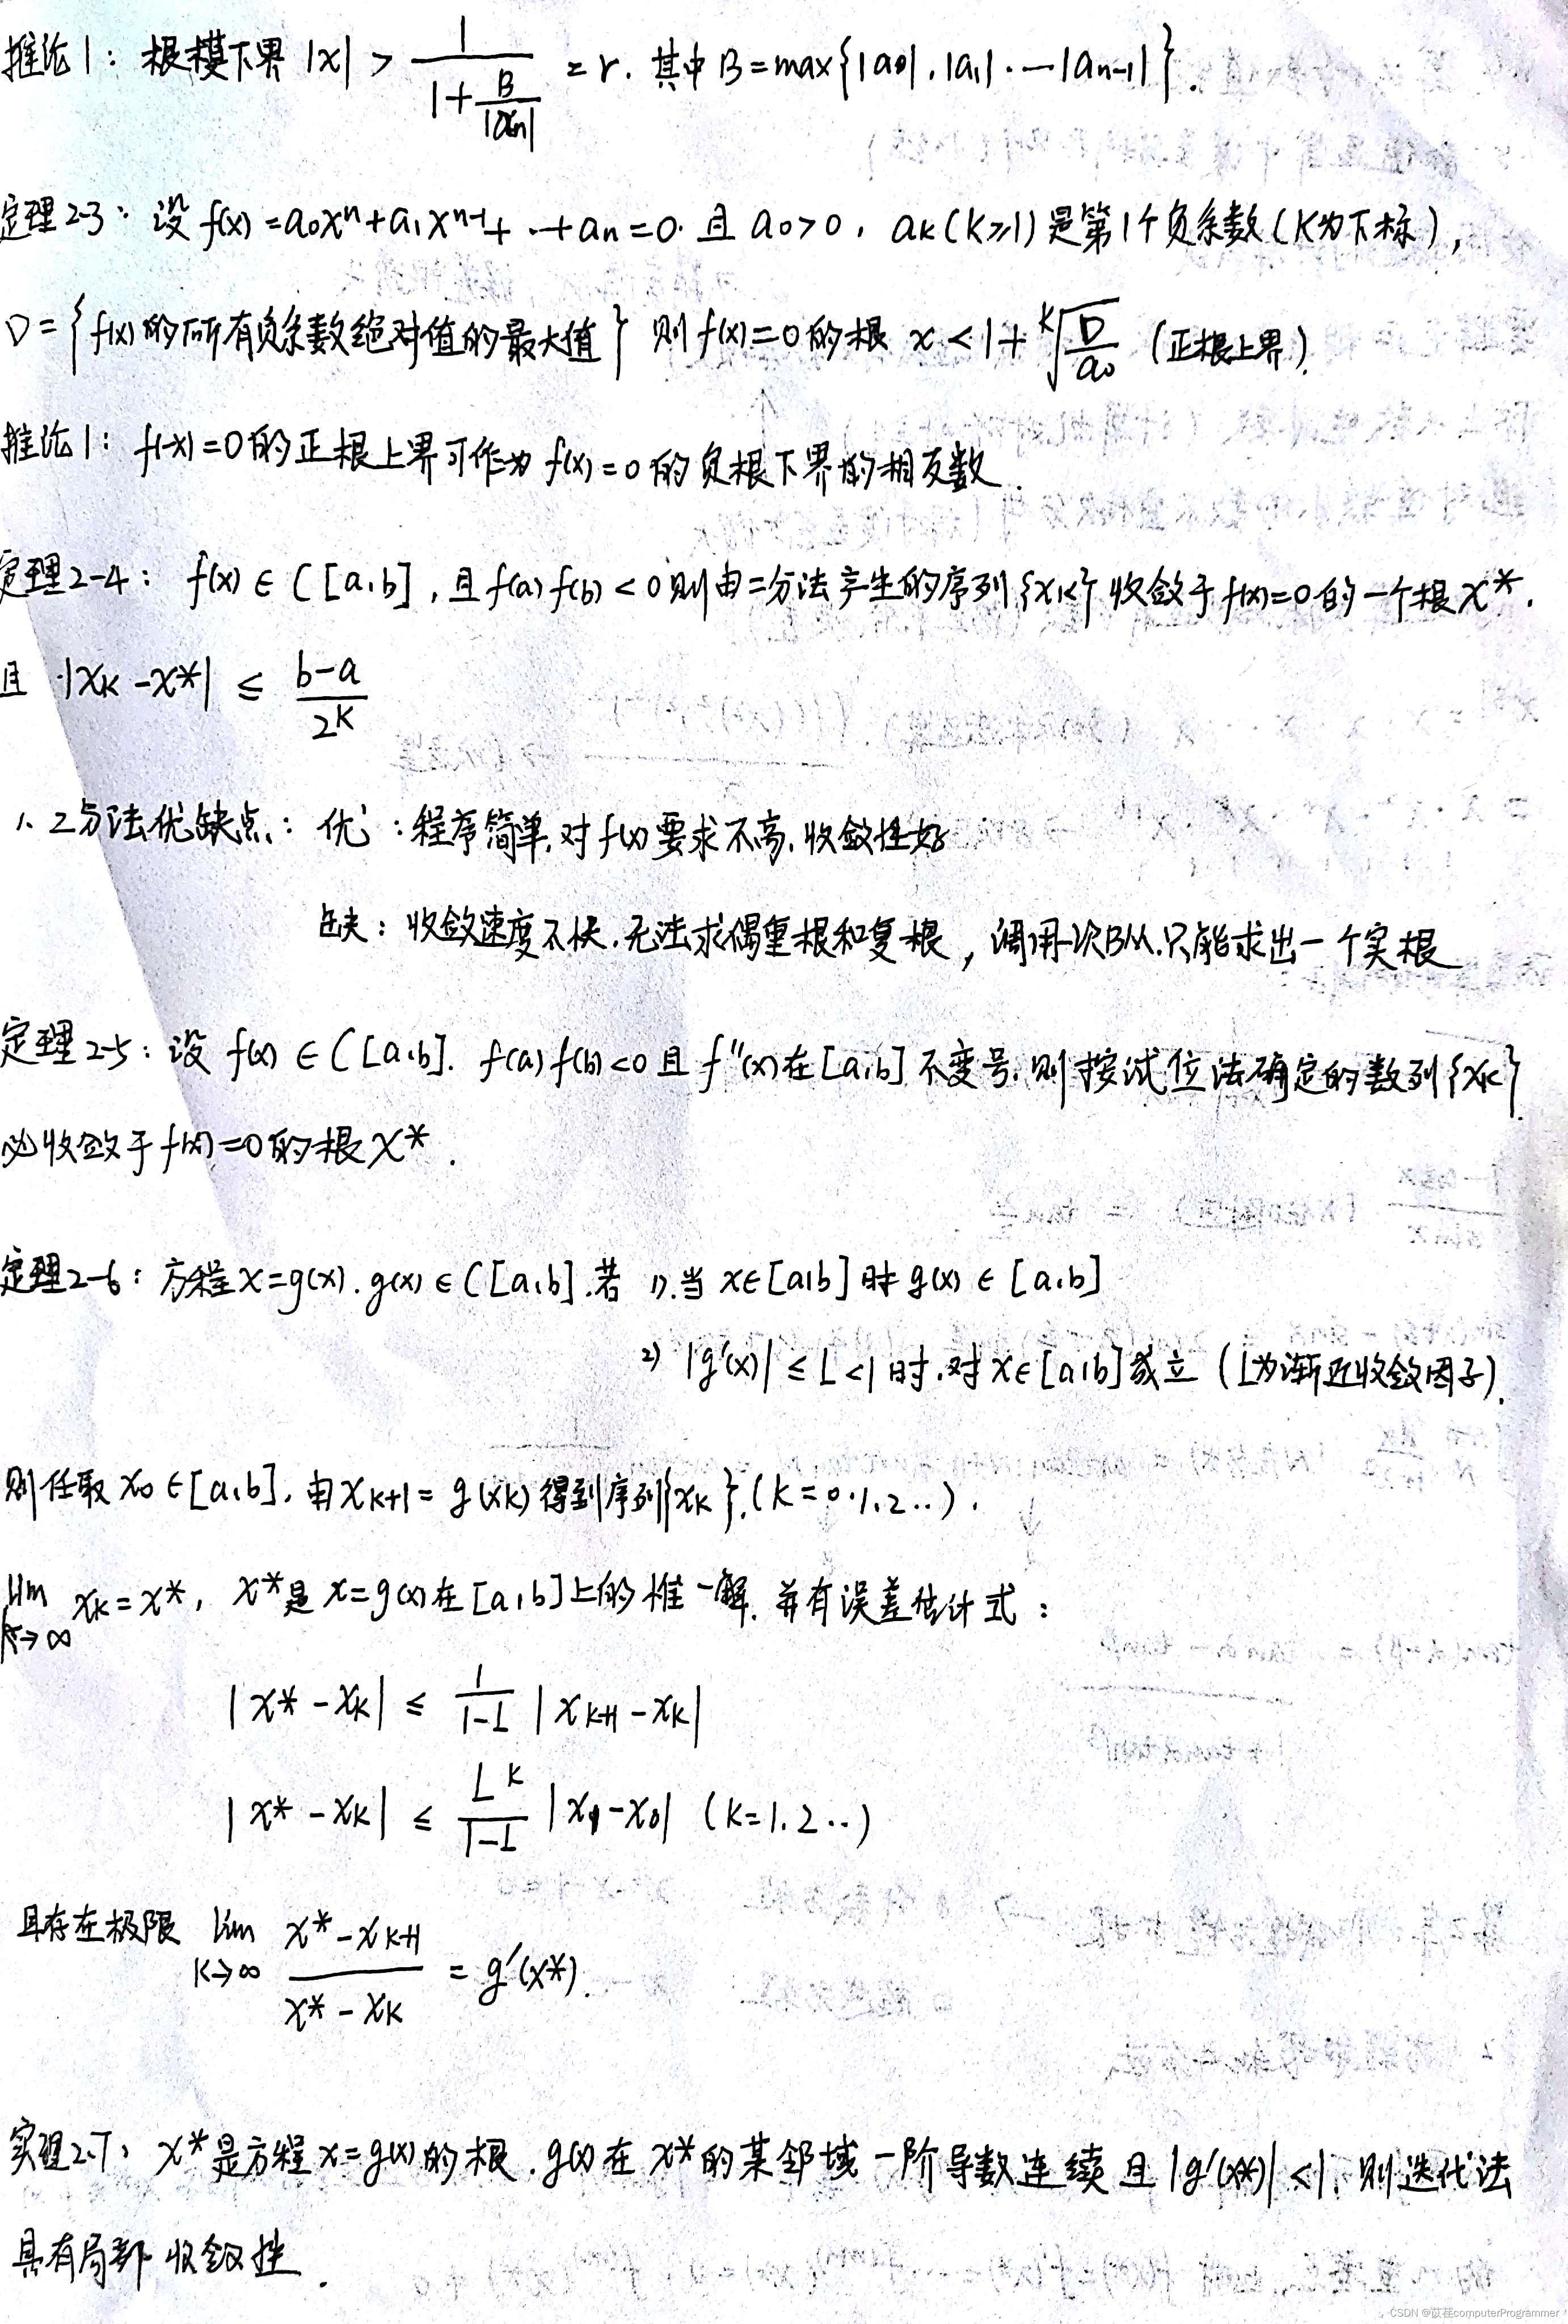 推论1：根模下界 |x| > 1/(1+B/|an|) = r. 其中 B=max{|a0|,|a1|.…|an-1|}.
定理2-3：设 f(x)=a0x^n+a1x^(n-1)+…+an=0. 且 a0>0, ak(K≥1)是第1个负系数(K为下标),
D={f(x)的所有负系数绝对值的最大值} 则 f(x)=0的根 x<1+ᴷ√(D/a0) (正根上界).
推论1：f(-x)=0的正根上界可作为 f(x)=0的负根下界的相反数.
定理2-4：f(x)∈C[a,b],且f(a)f(b)<0则由二分法产生的序列{xk}收敛于f(x)=0的一个根x*.
且 |xk-x*| ≤ (b-a)/2^K
1、2分法优缺点：优：程序简单,对f(x)要求不高,收敛性好
缺：收敛速度不快.无法求偶重根和复根,调用一次BM.只能求出一个实根
定理2-5：设 f(x)∈C[a,b]. f(a)f(b)<0且f''(x)在[a,b]不变号,则按试位法确定的数列{xk}
必收敛于f(x)=0的根x*.
定理2-6：方程x=g(x).g(x)∈C[a,b].若 1).当x∈[a,b]时g(x)∈[a,b]
2) |g'(x)|≤L<1时.对x∈[a,b]成立 (L为渐近收敛因子).
则任取x0∈[a,b],由xk+1=g(xk)得到序列{xk}.(k=0.1.2..).
lim k→∞ xk=x*, x*是x=g(x)在[a,b]上的惟一解.并有误差估计式：
|x*-xk| ≤ 1/(1-L) |xk+1-xk|
|x*-xk| ≤ L^k/(1-L) |x1-x0| (k=1.2..)
且存在极限 lim k→∞ (x*-xk+1)/(x*-xk) = g'(x*).
定理2.7：x*是方程x=g(x)的根.g(x)在x*的某邻域一阶导数连续且|g'(x*)|<1,则迭代法
具有局部收敛性.
CSDN @苡荏computerProgrammer